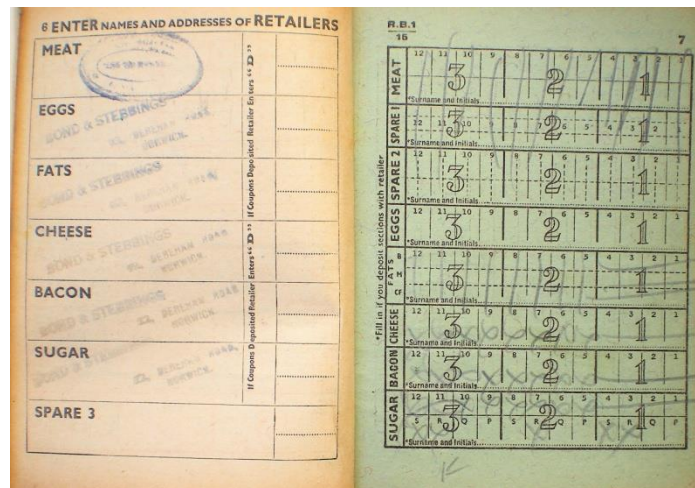 6 ENTER NAMES AND ADDRESSES OF RETAILERS
MEAT
EGGS
BOND & STEBBINGS
NORWICH.
FATS
BOND & STEBBINGS
NORWICH.
CHEESE
BOND & STEBBINGS
NORWICH.
BACON
BOND & STEBBINGS
NORWICH.
SUGAR
BOND & STEBBINGS
NORWICH.
SPARE 3
If Coupons Deposited Retailer Enters "D"
If Coupons Deposited Retailer Enters "D"
R.B.1
16
7
*Fill in if you deposit sections with retailer
MEAT
12 11 10 9 8 7 6 5 4 3 2 1
3 2 1
*Surname and Initials
SPARE 1
12 11 10 9 8 7 6 5 4 3 2 1
3 2 1
*Surname and Initials
SPARE 2
12 11 10 9 8 7 6 5 4 3 2 1
3 2 1
*Surname and Initials
EGGS
12 11 10 9 8 7 6 5 4 3 2 1
3 2 1
*Surname and Initials
FATS
12 11 10 9 8 7 6 5 4 3 2 1
3 2 1
*Surname and Initials
CHEESE
12 11 10 9 8 7 6 5 4 3 2 1
3 2 1
*Surname and Initials
BACON
12 11 10 9 8 7 6 5 4 3 2 1
3 2 1
*Surname and Initials
SUGAR
12 11 10 9 8 7 6 5 4 3 2 1
3 2 1
S R Q P S R Q P S R Q P
*Surname and Initials